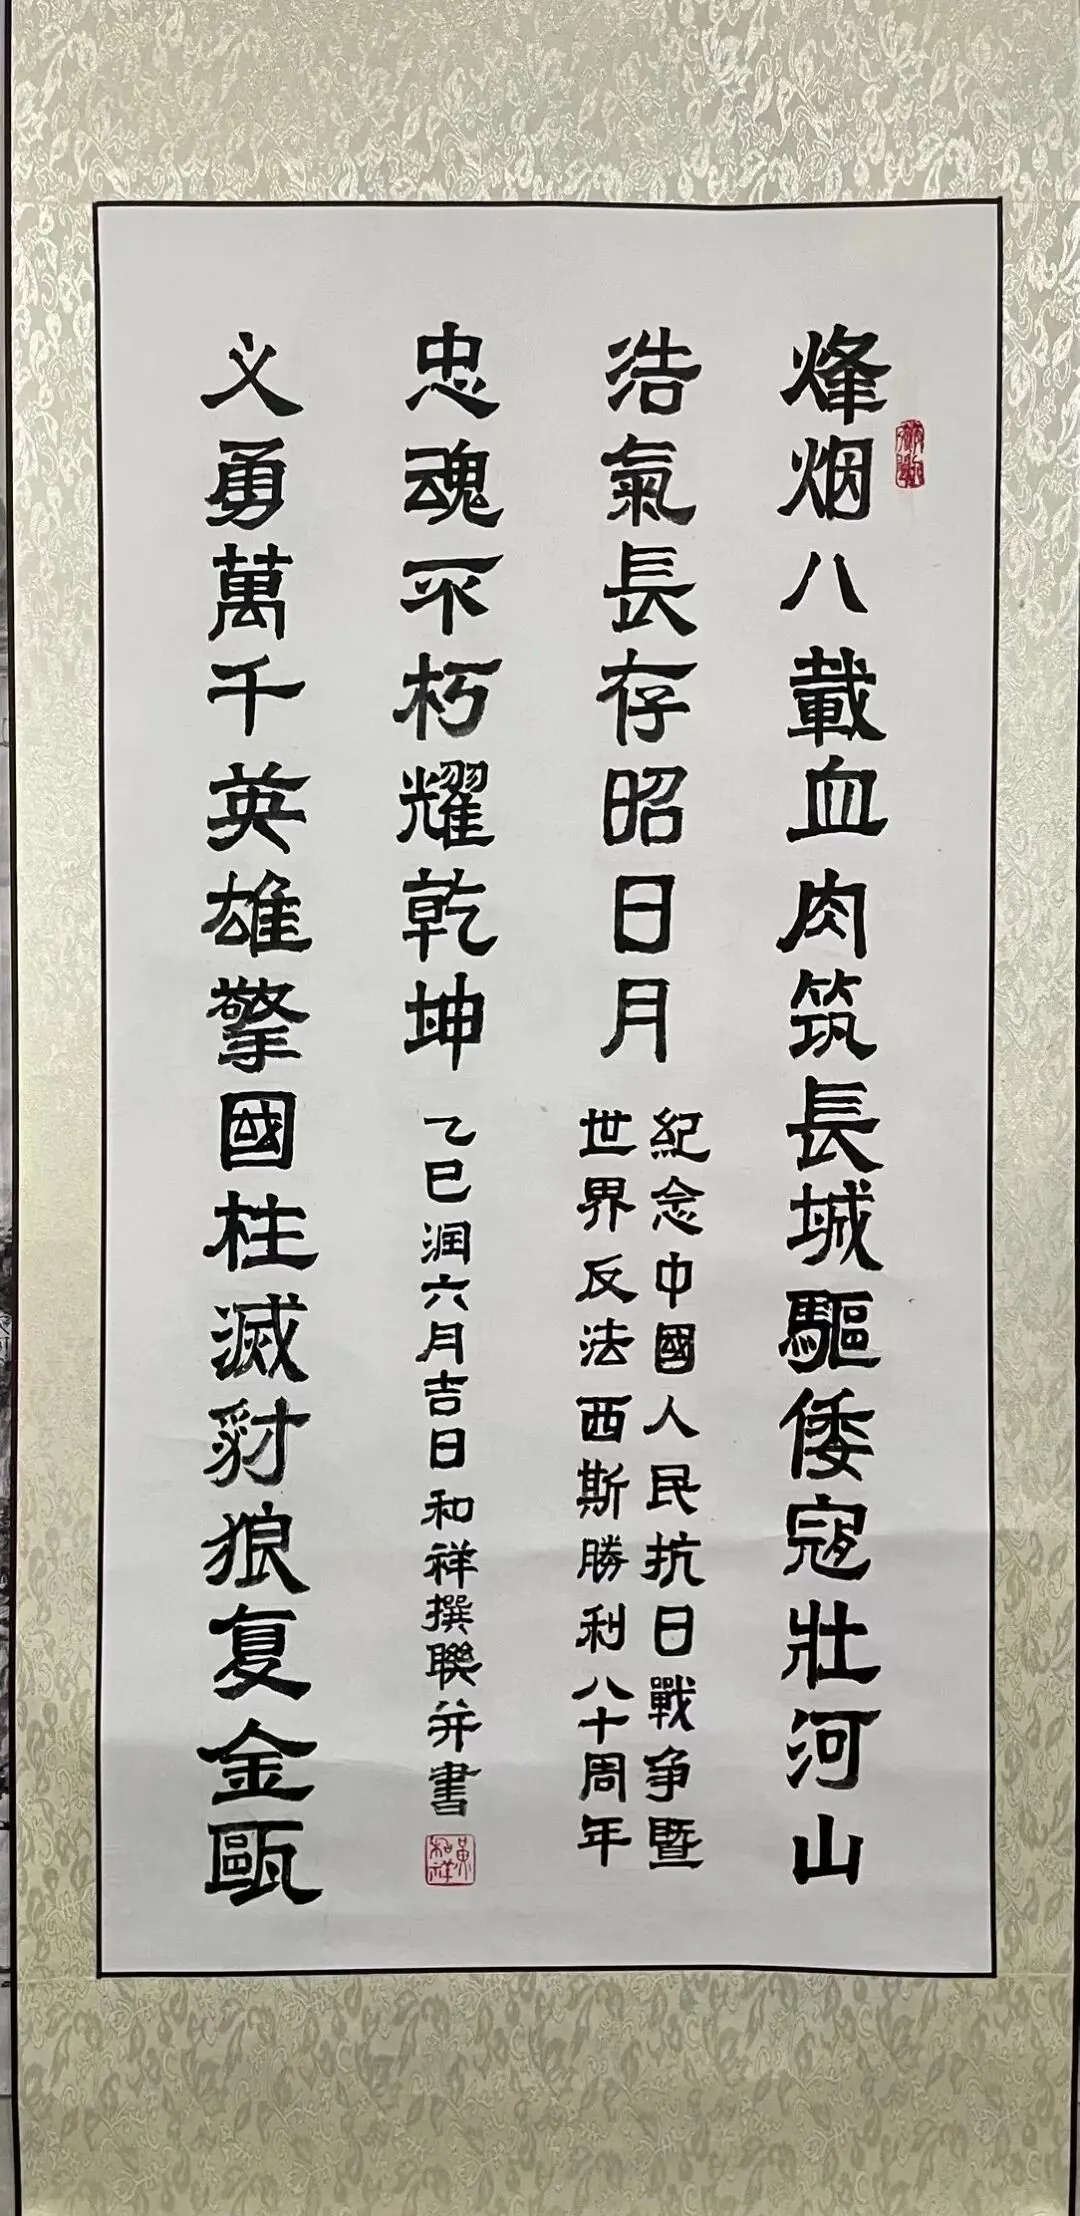 烽烟八載血肉筑長城驅倭寇壯河山
浩氣長存昭日月
紀念中國人民抗日戰争暨
世界反法西斯勝利八十周年
忠魂不朽耀乾坤
乙巳润六月吉日和祥撰聯并書
义勇萬千英雄擎國柱滅豺狼复金甌